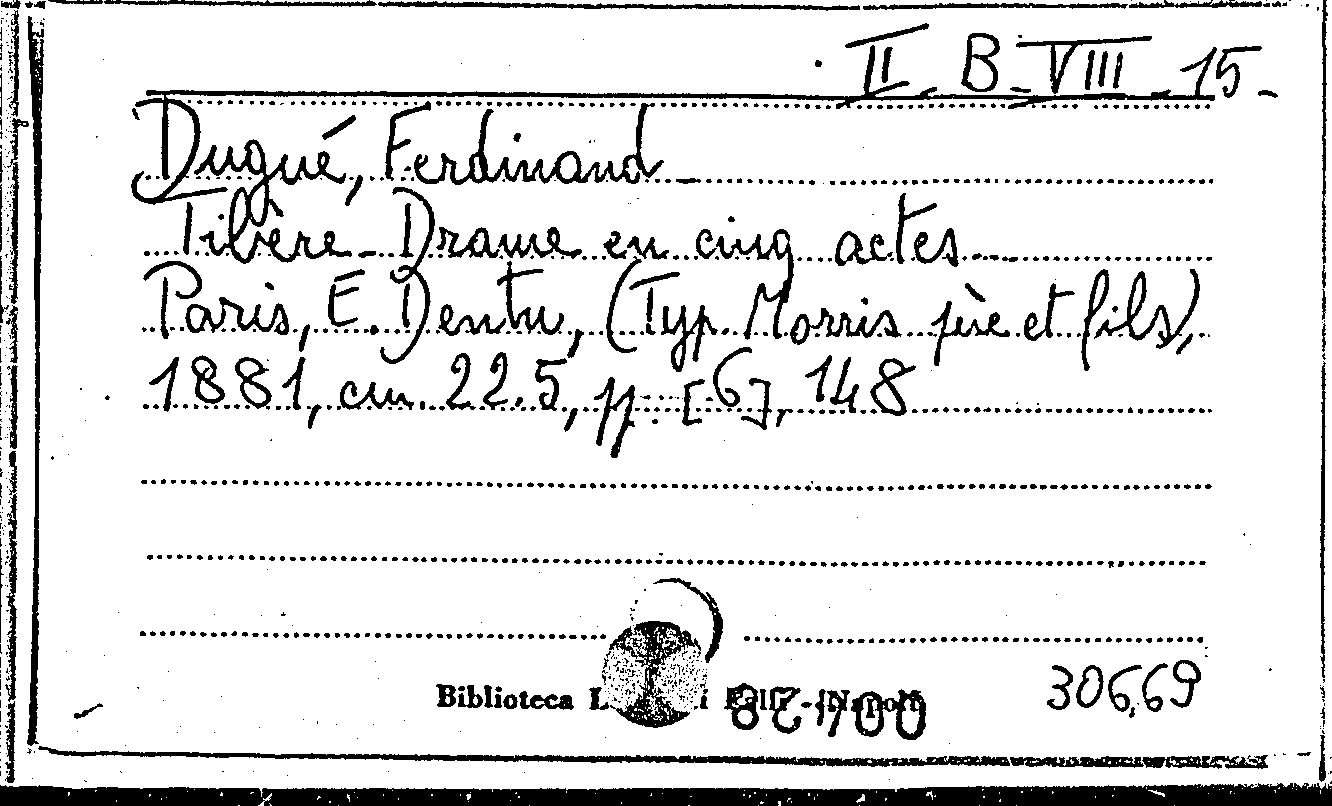 II - B - VIII - 15 -
Dugué, Ferdinand -
Tibère - Drame en cinq actes -
Paris, E. Dentu, (Typ. Morris père et fils),
1881, cm. 22.5, pp. [6], 148
Biblioteca
30669